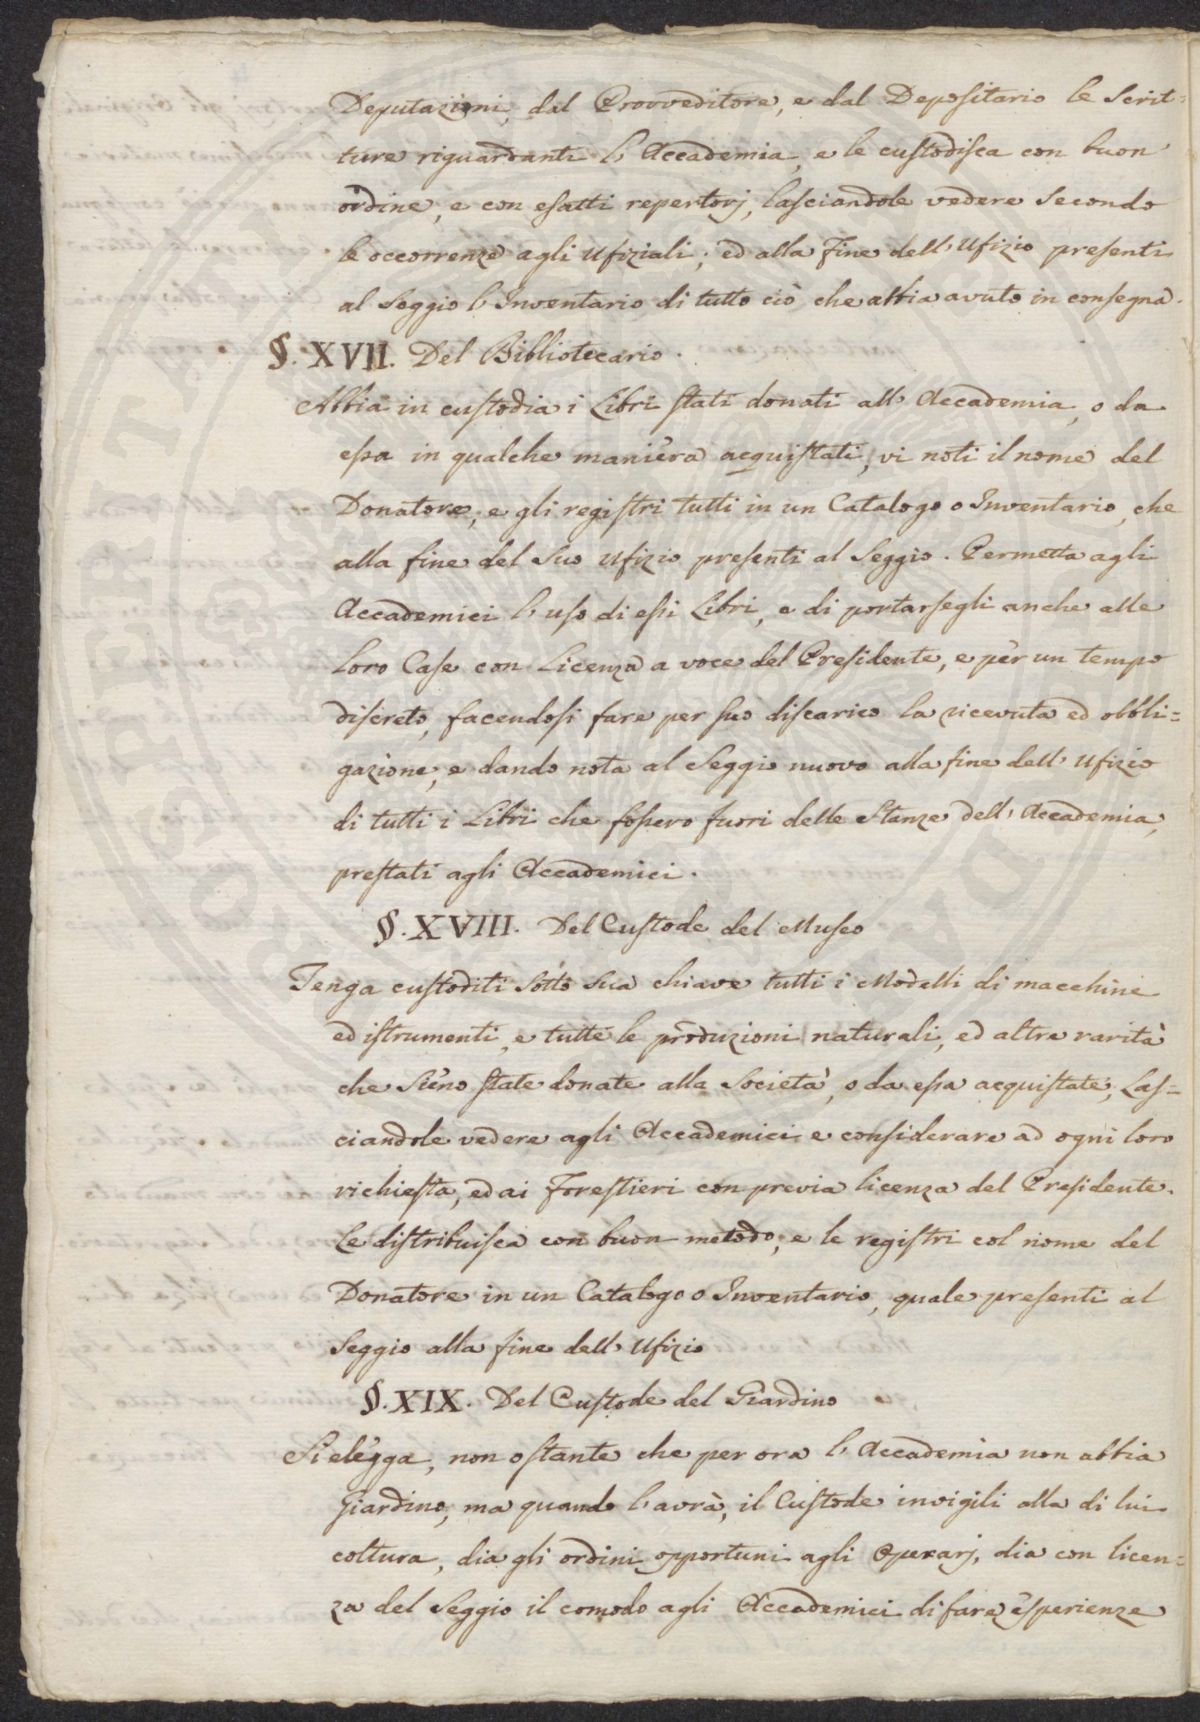 Deputazioni, dal Provveditore, e dal Depositario le Scrit=
ture riguardanti l'Accademia, e le custodisca con buon
ordine, e con esatti repertorj, lasciandole vedere secondo
le occorrenze agli Ufiziali; ed alla fine dell'Ufizio presenti
al Seggio l'Inventario di tutto ciò che abbia avuto in consegna.
§. XVII. Del Bibliotecario.
Abbia in custodia i Libri stati donati all'Accademia, o da
essa in qualche maniera acquistati, vi noti il nome del
Donatore, e gli registri tutti in un Catalogo o Inventario, che
alla fine del suo Ufizio presenti al Seggio. Permetta agli
Accademici l'uso di essi Libri, e di portarsegli anche alle
loro Case con Licenza a voce del Presidente, e per un tempo
discreto, facendosi fare per suo discarico la ricevuta ed obbli=
gazione, e dando nota al Seggio nuovo alla fine dell'Ufizio
di tutti i Libri che fossero fuori delle Stanze dell'Accademia,
prestati agli Accademici.
§. XVIII. Del Custode del Museo
Tenga custoditi sotto sua chiave tutti i Modelli di macchine
ed istrumenti, e tutte le produzioni naturali, ed altre rarità
che sieno state donate alla Società, o da essa acquistate, Las=
ciandole vedere agli Accademici e considerare ad ogni loro
richiesta, ed ai Forestieri con previa licenza del Presidente.
Le distribuisca con buon metodo, e le registri col nome del
Donatore in un Catalogo o Inventario, quale presenti al
Seggio alla fine dell'Ufizio
§. XIX. Del Custode del Giardino
Si elegga, non ostante che per ora l'Accademia non abbia
Giardino, ma quando l'avrà, il Custode invigili alla di lui
coltura, dia gli ordini opportuni agli Operarj, dia con licen=
za del Seggio il comodo agli Accademici di fare esperienze